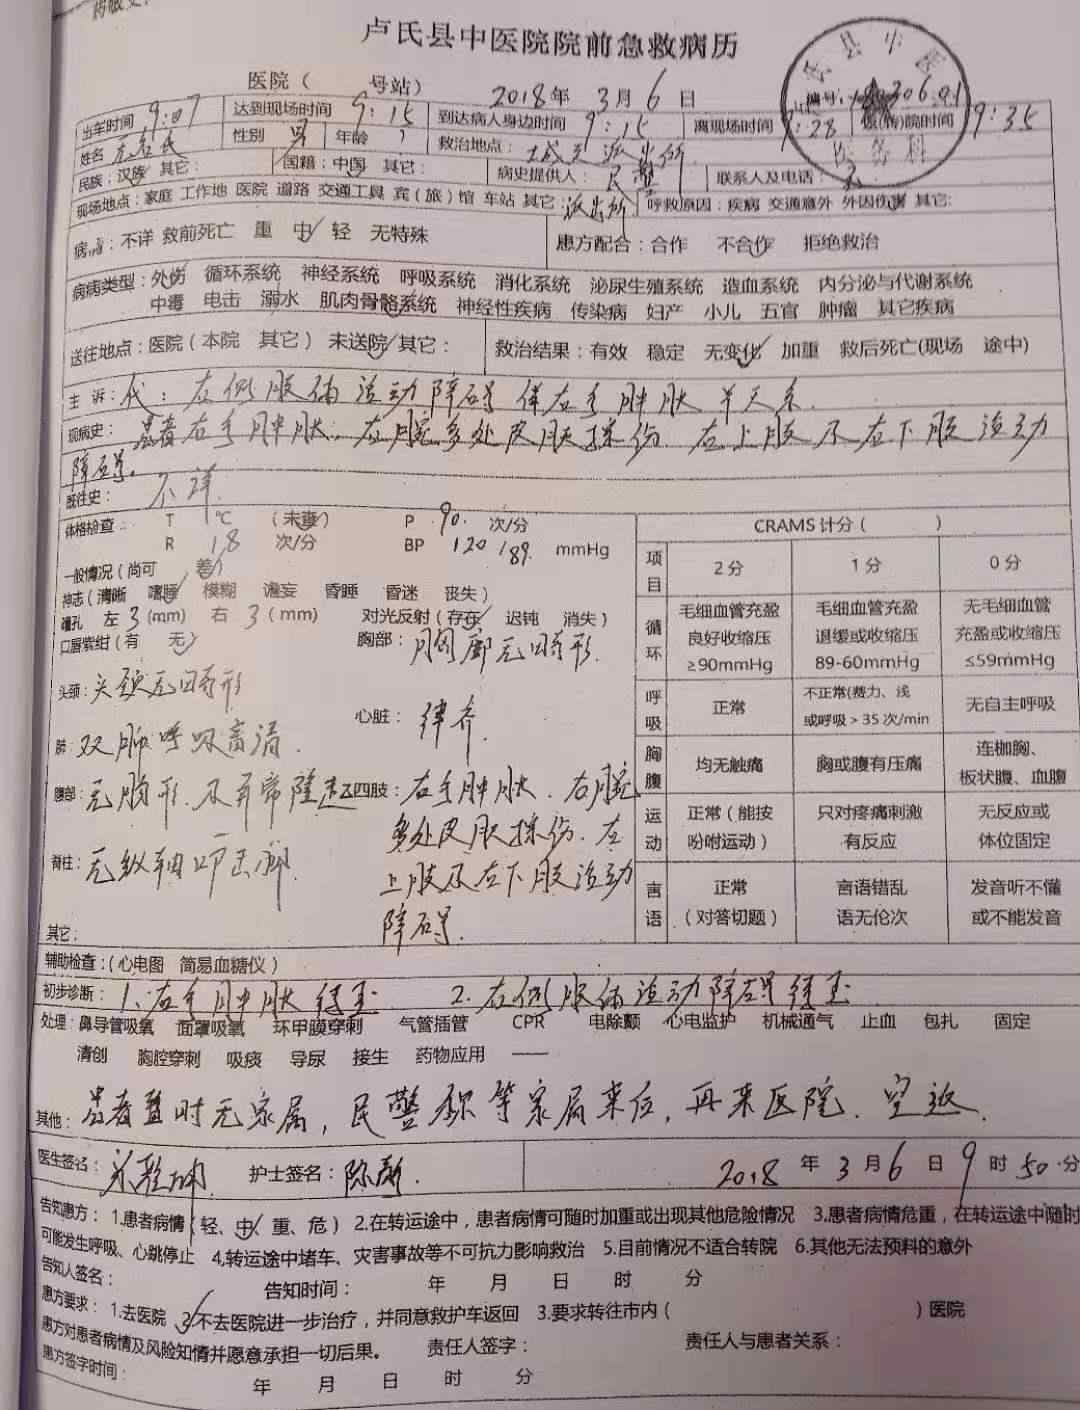 卢氏县中医院院前急救病历
医院（ 号站） 2018年 3月 6日
出车时间 9:07 达到现场时间 9:15 到达病人身边时间 9:15 离现场时间 9:28 时间 9:35
姓名 性别 男 年龄 救治地点： 派出所
民族：汉族 其它： 国籍：中国 其它： 病史提供人：民警 联系人及电话：无
现场地点：家庭 工作地 医院 道路 交通工具 宾（旅）馆 车站 其它：派出所 呼救原因：疾病 交通意外 外因伤害 其它：
病情：不详 救前死亡 重 中 轻 无特殊 患方配合：合作 不合作 拒绝救治
病病类型：外伤 循环系统 神经系统 呼吸系统 消化系统 泌尿生殖系统 造血系统 内分泌与代谢系统
中毒 电击 溺水 肌肉骨骼系统 神经性疾病 传染病 妇产 小儿 五官 肿瘤 其它疾病
送往地点：医院（本院 其它） 未送院 其它： 救治结果：有效 稳定 无变化 加重 救后死亡(现场 途中)
主 诉：代：左侧肢体活动障碍伴右手肿胀半天余.
现病史：患者右手肿胀，右腕多处皮肤擦伤 左上肢及左下肢活动
障碍。
既往史：不详
体格检查： T ℃ （未查） P 90. 次/分
R 18 次/分 BP 120/89. mmHg
一般情况（尚可 差）
神志（清晰 嗜睡 模糊 谵妄 昏睡 昏迷 丧失）
瞳孔 左3(mm) 右3(mm) 对光反射（存在 迟钝 消失）
口唇紫绀（有 无） 胸部：胸廓无畸形.
头颈：头颈无畸形
心脏：律齐.
肺：双肺呼吸音清.
腹部： 四肢：右手肿胀.右腕
多处皮肤擦伤.左
上肢及左下肢活动
障碍.
脊柱：无纵轴叩击痛.
其它：
CRAMS 计分（ ）
项目 2分 1分 0分
循环 毛细血管充盈良好收缩压≥90mmHg 毛细血管充盈退缓或收缩压89-60mmHg 无毛细血管充盈或收缩压≤59mmHg
呼吸 正常 不正常(费力、浅或呼吸＞35次/min 无自主呼吸
胸腹 均无触痛 胸或腹有压痛 连枷胸、板状腹、血腹
运动 正常（能按吩咐运动） 只对疼痛刺激有反应 无反应或体位固定
言语 正常（对答切题） 言语错乱语无伦次 发音听不懂或不能发音
辅助检查：(心电图 简易血糖仪)
初步诊断：1、右手肿胀待查 2.左侧肢体活动障碍待查
处理：鼻导管吸氧 面罩吸氧 环甲膜穿刺 气管插管 CPR 电除颤 心电监护 机械通气 止血 包扎 固定
清创 胸腔穿刺 吸痰 导尿 接生 药物应用 ——
其他：患者暂时无家属，民警称等家属来后，再来医院.空返.
医生签名： 护士签名： 2018 年 3月6日9时50分
告知患方：1.患者病情（轻、中、重、危）2.在转运途中，患者病情可随时加重或出现其他危险情况 3.患者病情危重，在转运途中随时
可能发生呼吸、心跳停止 4.转运途中堵车、灾害事故等不可抗力影响救治 5.目前情况不适合转院 6.其他无法预料的意外
告知人签名： 告知时间： 年 月 日 时 分
患方要求：1.去医院 2.不去医院进一步治疗，并同意救护车返回 3.要求转往市内（ ）医院
患方对患者病情及风险知情并愿意承担一切后果。 责任人签字： 责任人与患者关系：
患方签字时间： 年 月 日 时 分